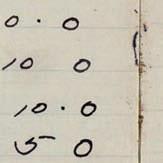 0 . 0
10 0
10 . 0
5 0